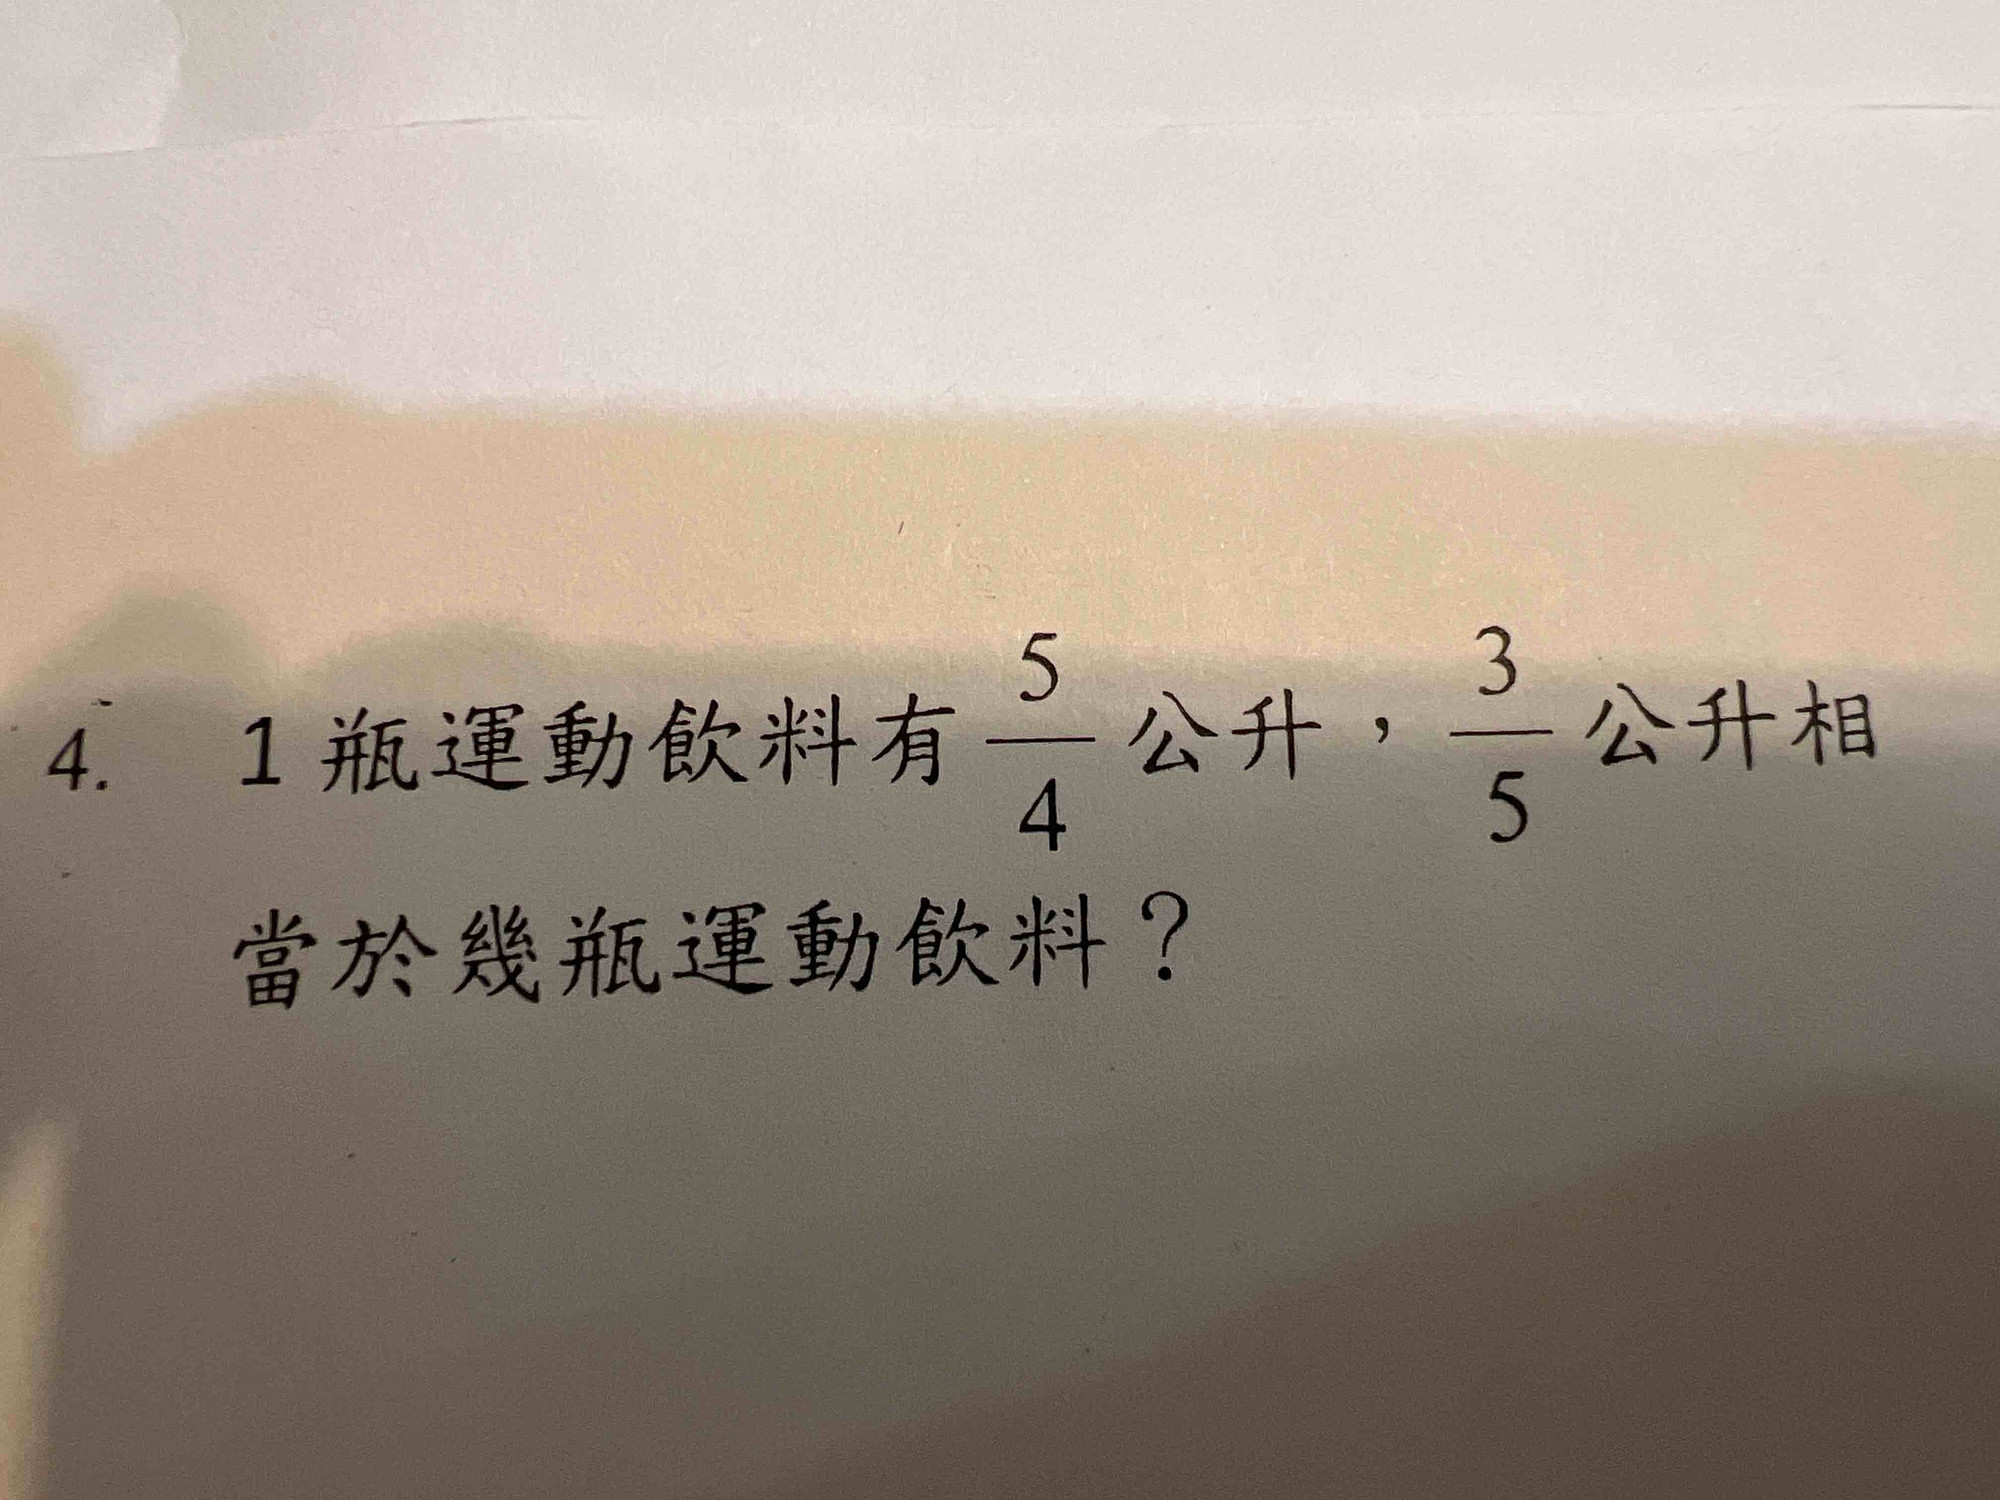 4. 1瓶運動飲料有5/4公升，3/5公升相
當於幾瓶運動飲料？